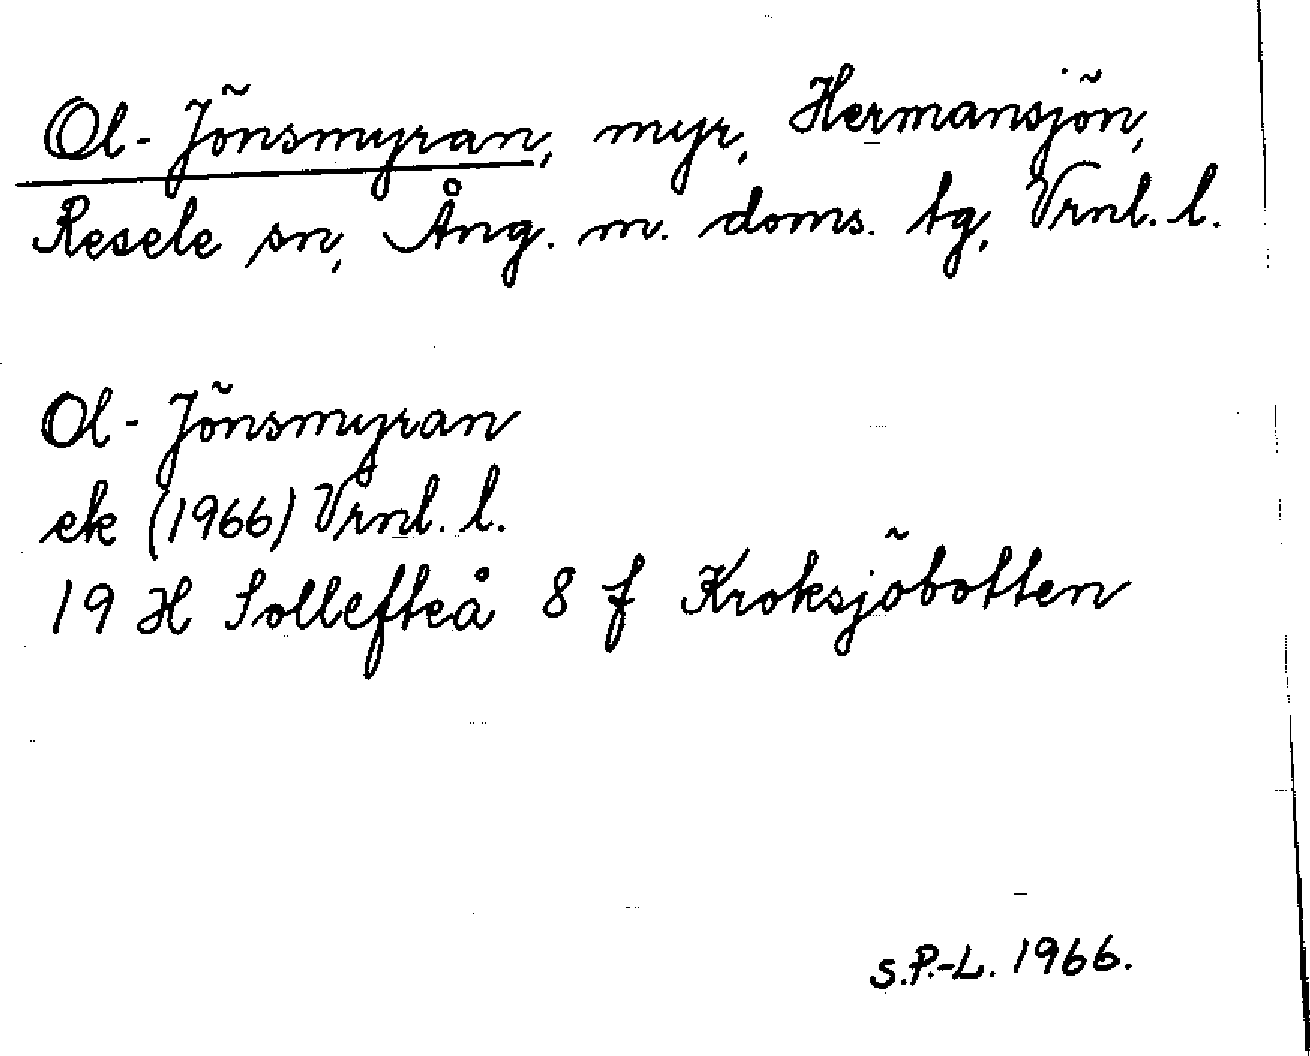 Ol-Jönsmyran, myr, Hermansjön,
Resele sn, Ång. m. doms. tg, Vrnl. l.
Ol-Jönsmyran
ek (1966) Vrnl. l.
19 H Sollefteå 8 f Kroksjöbotten
S.P.-L. 1966.